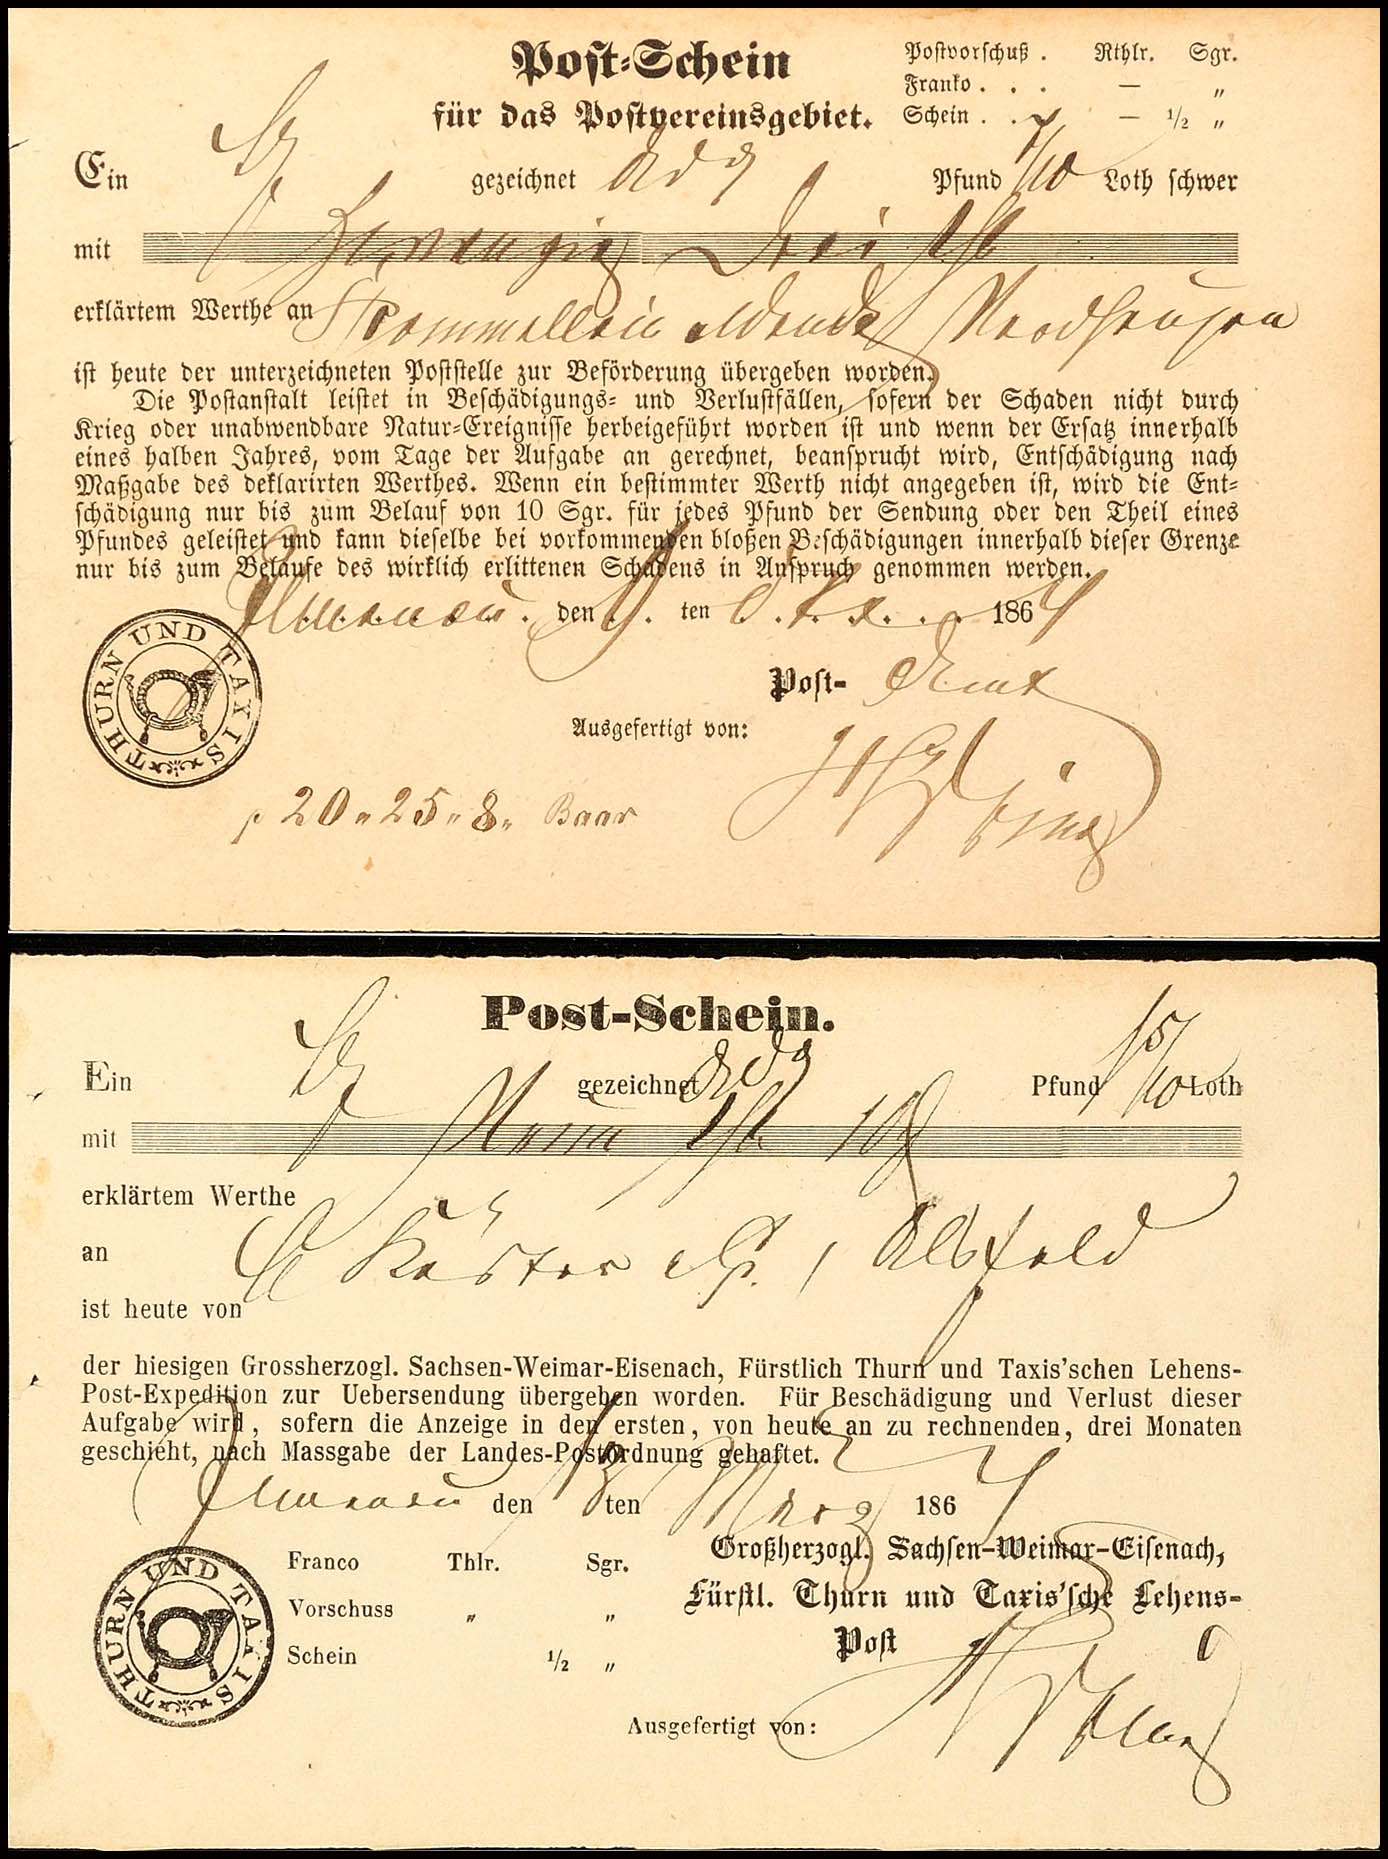 Post-Schein
für das Postvereinsgebiet.
Postvorschuß . Rthlr. Sgr.
Franko . . . — "
Schein . . — 1/2 "
Ein gezeichnet Pfund /10 Loth schwer
mit Zwanzig Drei
erklärtem Werthe an Nordhausen
ist heute der unterzeichneten Poststelle zur Beförderung übergeben worden.
Die Postanstalt leistet in Beschädigungs- und Verlustfällen, sofern der Schaden nicht durch
Krieg oder unabwendbare Natur-Ereignisse herbeigeführt worden ist und wenn der Ersatz innerhalb
eines halben Jahres, vom Tage der Aufgabe an gerechnet, beansprucht wird, Entschädigung nach
Maßgabe des deklarirten Werthes. Wenn ein bestimmter Werth nicht angegeben ist, wird die Ent-
schädigung nur bis zum Belauf von 10 Sgr. für jedes Pfund der Sendung oder den Theil eines
Pfundes geleistet und kann dieselbe bei vorkommenden bloßen Beschädigungen innerhalb dieser Grenze
nur bis zum Belaufe des wirklich erlittenen Schadens in Anspruch genommen werden.
Ilmenau. den 9. ten 1864
THURN UND TAXIS
Post- Amt
Ausgefertigt von:
20 " 25 " 8 " Baar
Post-Schein.
Ein gezeichnet Pfund 5/10 Loth
mit Neun
erklärtem Werthe
an Köster Alsfeld
ist heute von
der hiesigen Grossherzogl. Sachsen-Weimar-Eisenach, Fürstlich Thurn und Taxis'schen Lehens-
Post-Expedition zur Uebersendung übergeben worden. Für Beschädigung und Verlust dieser
Aufgabe wird, sofern die Anzeige in den ersten, von heute an zu rechnenden, drei Monaten
geschieht, nach Massgabe der Landes-Postordnung gehaftet.
Ilmenau den ten März 1864
Großherzogl. Sachsen-Weimar-Eisenach,
Fürstl. Thurn und Taxis'sche Lehens-
Post
THURN UND TAXIS
Franco Thlr. Sgr.
Vorschuss " "
Schein 1/2 "
Ausgefertigt von: